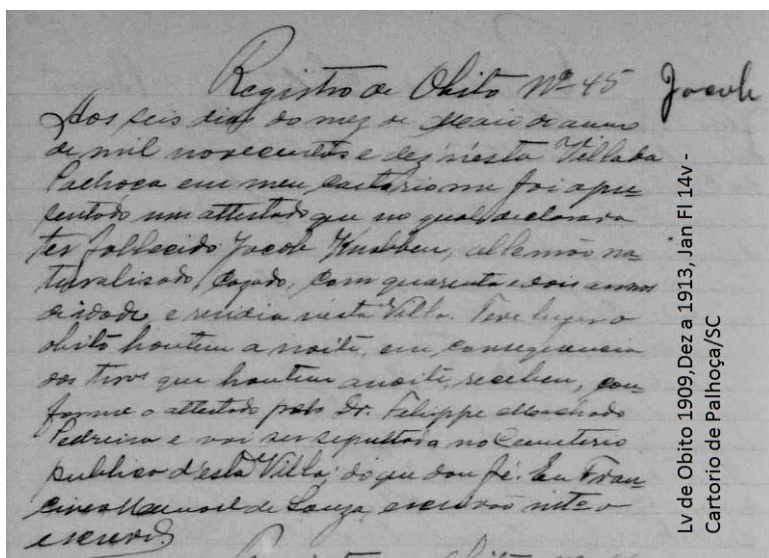 Registro de Obito Nº 45
Jacob
Aos seis dias do mez de Maio do anno
de mil novecentos e dez n'esta Villa da
Palhoça em meu cartorio me foi apre
sentado um attestado que no qual declarava
ter fallecido Jacob Knabben, allemão na
turalisado, cazado, com quarenta e dois annos
de idade e residia nesta Villa. Teve lugar o
obito hontem a noite, em consequencia
dos tiros que hontem a noite, recebeu, con
forme o attestado pelo Dr. Felippe Machado
Pedreira e vai ser sepultado no Cemeterio
publico d'esta Villa; do que dou fé. Eu Fran
cisco Manoel de Souza, escrivão int.º o
escrevi
Lv de Obito 1909,Dez a 1913, Jan Fl 14v -
Cartorio de Palhoça/SC